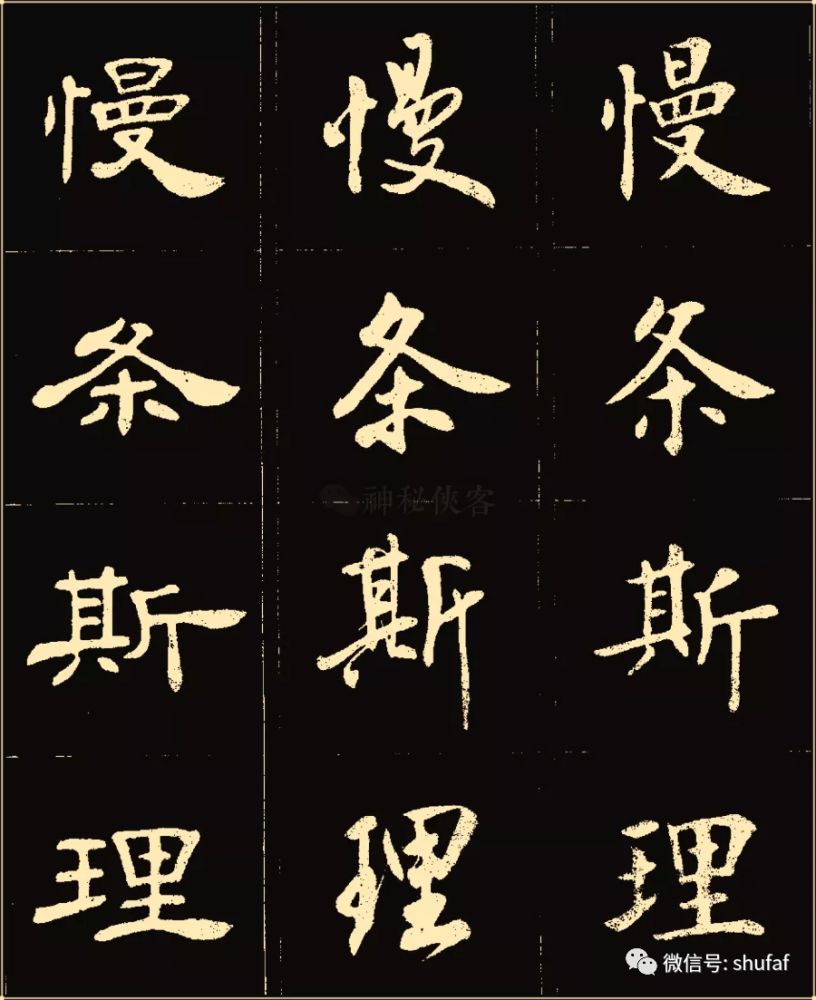 慢条斯理
慢条斯理
慢条斯理
神秘侠客
微信号: shufaf